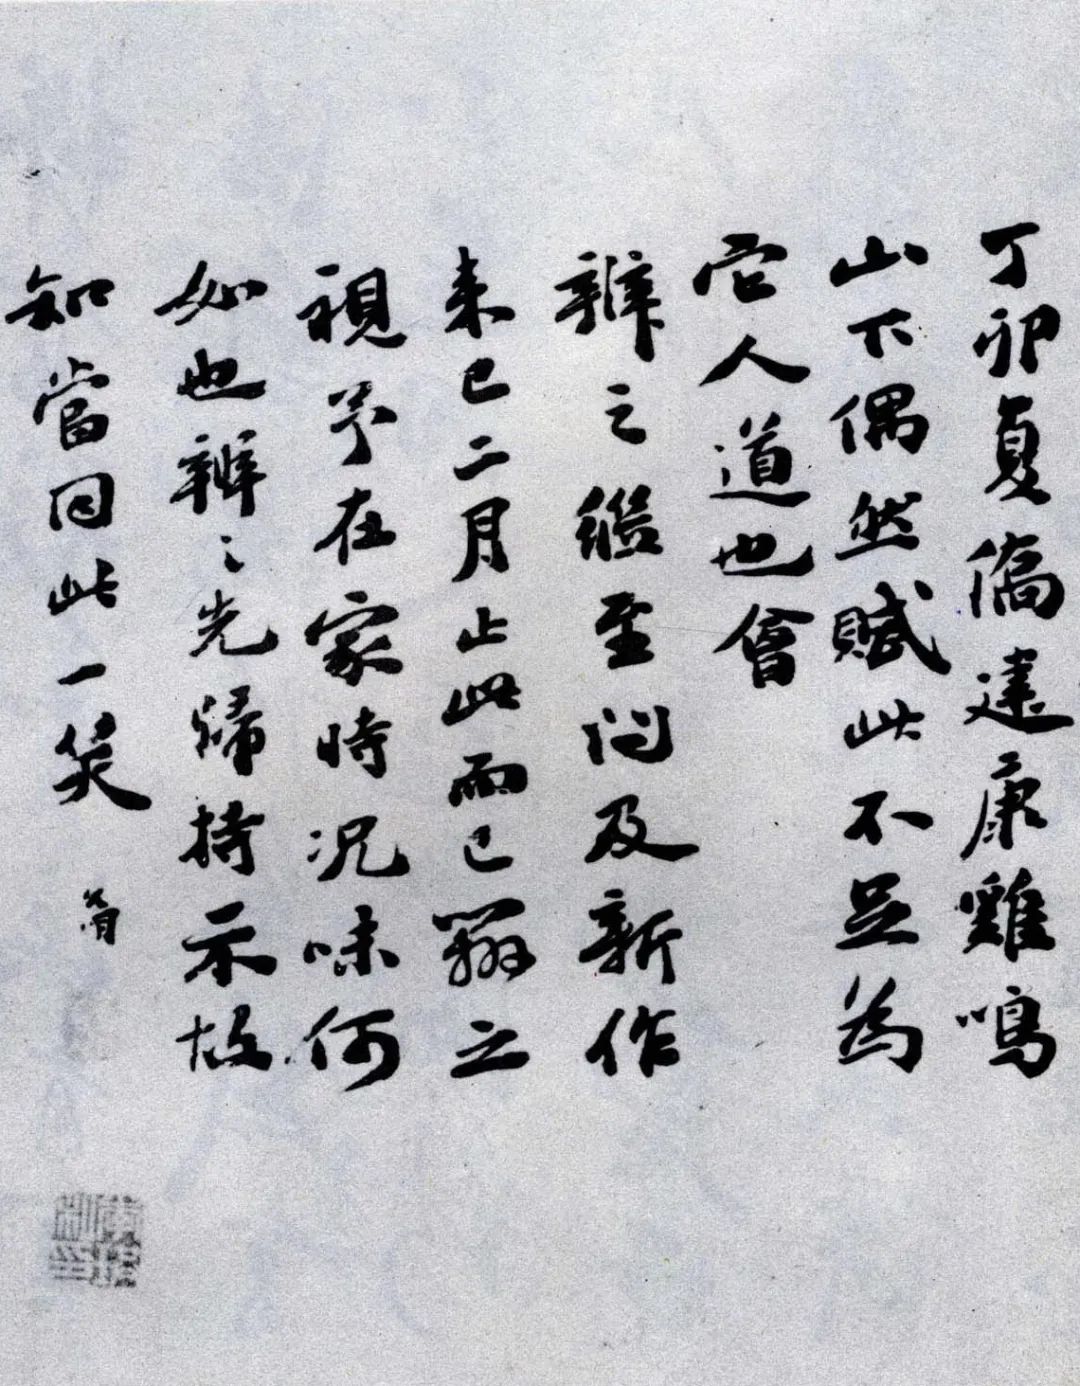 丁卯夏僑建康雞鳴
山下偶然賦此不足為
它人道也會
辨之繼至問及新作
来已二月止此而已之
視予在家時況味何
如也辨之先歸持示故
知當同此一笑